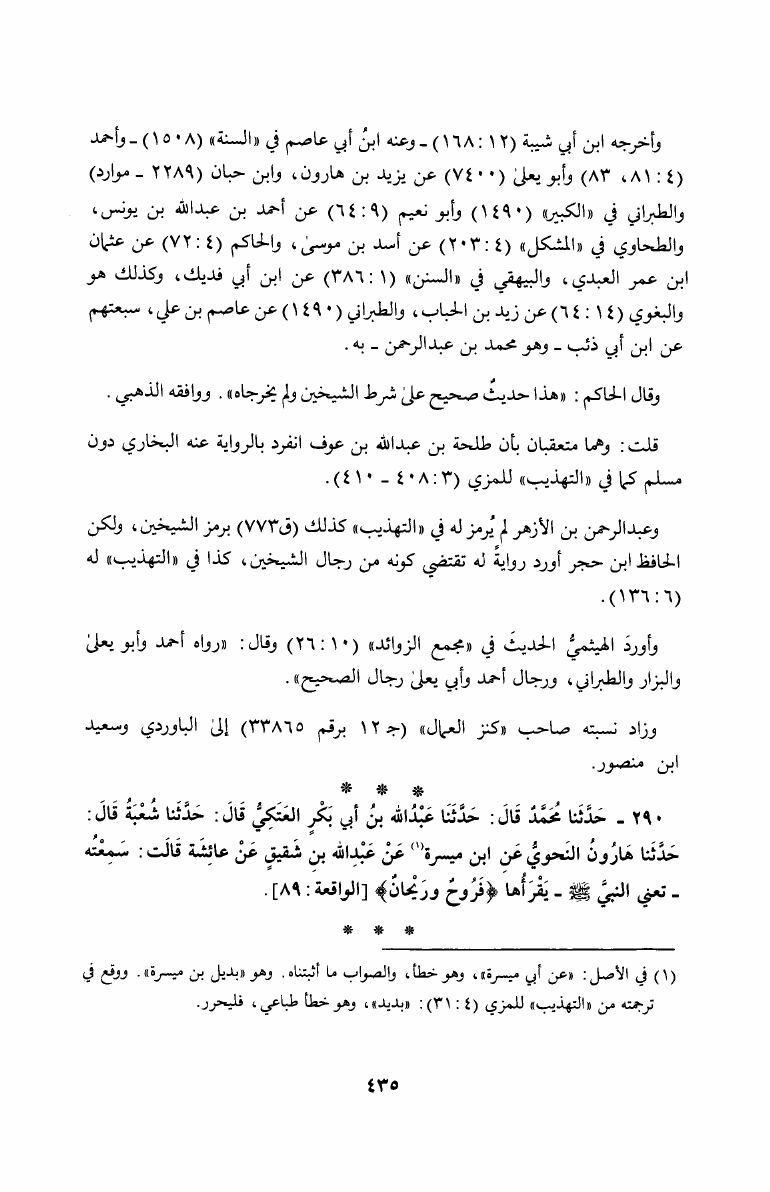 وأخرجه ابن أبي شيبة (١٢: ١٦٨) - وعنه ابنُ أبي عاصم في «السنة» (١٥٠٨) - وأحمد
(٤: ٨١، ٨٣) وأبو يعلىٰ (٧٤٠٠) عن يزيد بن هارون، وابن حبان (٢٢٨٩ - موارد)
والطبراني في «الكبير» (١٤٩٠) وأبو نعيم (٩: ٦٤) عن أحمد بن عبدالله بن يونس،
والطحاوي في «المشكل» (٤: ٢٠٣) عن أسد بن موسىٰ، والحاكم (٤: ٧٢) عن عثمان
ابن عمر العبدي، والبيهقي في «السنن» (١: ٣٨٦) عن ابن أبي فديك، وكذلك هو
والبغوي (١٤: ٦٤) عن زيد بن الحباب، والطبراني (١٤٩٠) عن عاصم بن علي، سبعتهم
عن ابن أبي ذئب - وهو محمد بن عبدالرحمن - به.
وقال الحاكم: «هذا حديثٌ صحيح علىٰ شرط الشيخين ولم يخرجاه». ووافقه الذهبي.
قلت: وهما متعقبان بأن طلحة بن عبدالله بن عوف انفرد بالرواية عنه البخاري دون
مسلم كما في «التهذيب» للمزي (٣: ٤٠٨ - ٤١٠).
وعبدالرحمن بن الأزهر لم يُرمز له في «التهذيب» كذلك (ق٧٧٣) برمز الشيخين، ولكن
الحافظ ابن حجر أورد روايةً له تقتضي كونه من رجال الشيخين، كذا في «التهذيب» له
(٦: ١٣٦).
وأوردَ الهيثميُّ الحديثَ في «مجمع الزوائد» (١٠: ٢٦) وقال: «رواه أحمد وأبو يعلىٰ
والبزار والطبراني، ورجال أحمد وأبي يعلىٰ رجال الصحيح».
وزاد نسبته صاحب «كنز العمال» (جـ ١٢ برقم ٣٣٨٦٥) إلىٰ الباوردي وسعيد
ابن منصور.
* * *
٢٩٠ - حَدَّثَنا مُحَمَّدٌ قَالَ: حَدَّثَنَا عَبْدُالله بنُ أبي بَكْرٍ العَتَكِيُّ قَالَ: حَدَّثَنا شُعْبَةُ قَالَ:
حَدَّثَنا هَارُونُ النَحويُّ عَنِ ابن ميسرة(١) عَنْ عَبْدِالله بنِ شَقيقٍ عَنْ عائِشَة قَالَت: سَمِعْتُه
- تعني النبيَّ ﷺ - يَقْرَأُها ﴿فَرُوحٌ ورَيْحانٌ﴾ [الواقعة: ٨٩].
* * *
(١) في الأصل: «عن أبي ميسرة»، وهو خطأ، والصواب ما أثبتناه. وهو «بديل بن ميسرة». ووقع في
ترجمته من «التهذيب» للمزي (٤: ٣١): «بديد»، وهو خطأ طباعي، فليحرر.
٤٣٥